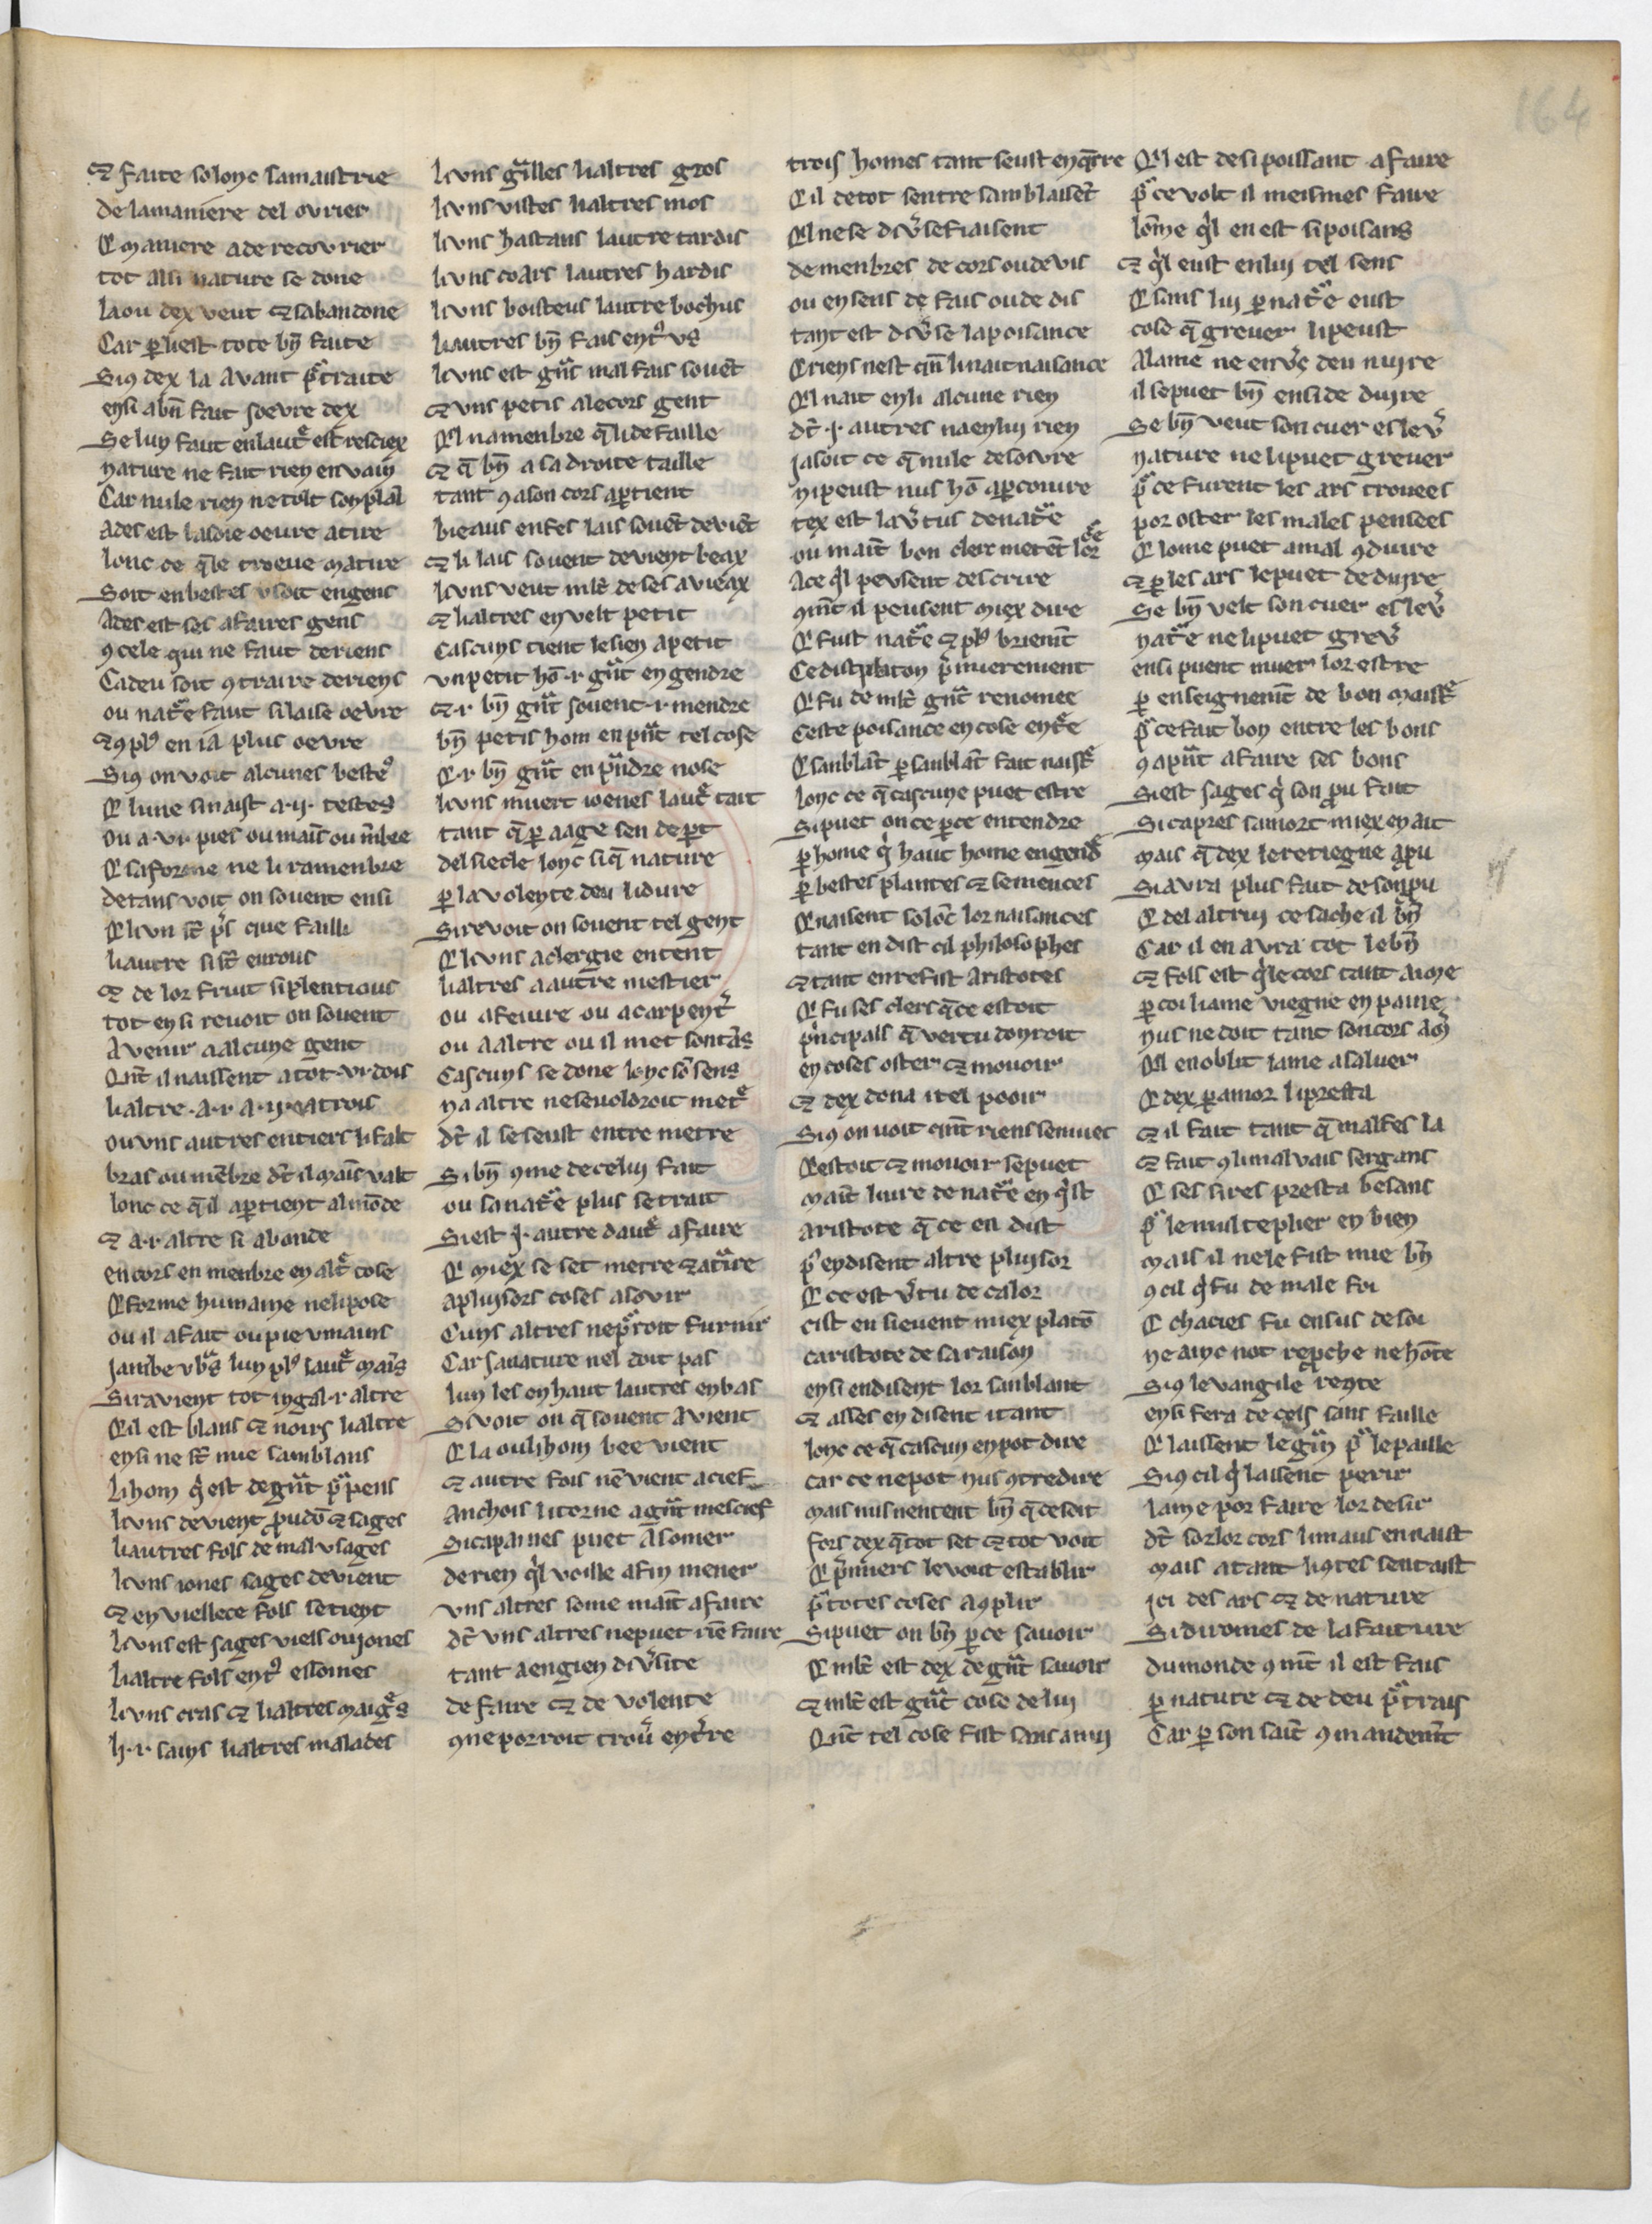 164
⁊ faite solonc samaistrie
de lamaniere del ovrier
Q̃ maniere a de recovrier
tot assi nature se done
laou dex veut ⁊ sabandone
Car ꝑ liest tote bñ faite
Siꝯ dex la avant pͣtraite
ensi a bñ fait soevre dex
Se lun faut enlautͤ est resciex
nature ne fait rien en vain
Car nule rien ne tolt son plain
Ades est lasoie oeure a tire
lonc ce q̃le troeue matire
Soit en bestes v soit en gens
Ades est ses afaires gens
ꝯ cele qui ne faut de riens
Ca deu soit ꝯtraire de riens
ou natͬe faut si laise oevre
⁊ ꝯ plꝰ en i a plus oevre
Siꝯ on voit alcunes bestes
Q̃ lune si naist a .ii. testes
ou a .vi. pies ou mais ou mēbre
Q̃ sa forme ne li ramenbre
de tans voit on souent ensi
Q̃ liun st̃ pͥs que failli
li autre si st̃ enrous
⁊ de lor fruit si plentious
tot ensi reuoit on souent
A venir a alcune gent
Qñt il naissent a tot .vi. dois
li altre .a. i. a .ii. v a trois
ou uns autres entiers li falt
bras ou mēbre dt̃ il mais valt
lonc ce q̃ il apartient al mōde
⁊ a .i. altre si abonde
en cors en menbre en altͤ cose
Q̃ forme humaine ne li pose
ou il a fait ou pie v mains
jambe v bͣs lun plꝰ lautͤ mais
Si ravient tot ingal .i. altre
Q̃ il est blans ⁊ noirs li altre
ensi ne st̃ mie samblans
Li hom qͥ est de gñt pͬpens
li uns devient ꝓudō ⁊ sages
li autres fols de mal usages
li uns iones sages devient
⁊ en viellece fols se tient
li uns est sages viels ou jones
li altre fols entͥ es somes
li uns cras ⁊ li altres maigͤs
li .i. sains li altres malades
li uns gͣilles li altres gros
li uns vistes li altres mos
li uns hastans lautre tardis
li uns coars lautres hardis
li uns boisteus lautre bochus
li autres bñ fais entͥ us
li uns est gñs mal fais souēt
⁊ uns petis a le cors gent
Ql na menbre q̃ li de faille
⁊ q̃ bñ a sa droite taille
tant ꝯ a son cors aꝑtient
bieaus enfes lais souēt deviēt
⁊ li lais souent devient beax
li uns veut mlt̃ de ses avieax
⁊ li altres en velt petit
Cascuns tient le sien a petit
vn petit hō .i. gñt engendre
⁊ .i. bñ gñt souent .i. mendre
bñ petis hom enpñt tel cose
Q̃ .i. bñ gñt enpͬndre nose
li uns muert iouenes lautͤ tait
tant q̃ ꝑ aage sen deꝑt
del siecle lonc si q̃ nature
ꝑ la volente deu li dure
Si revoit on souent tel gent
Q̃ li uns a clergie entent
li altres a autre mestier
ou a feiure ou a carpentͥ
ou a altre ou il met son tās
Cascuns se done lonc sō sens
na altre ne se uoloroit metͤ
dt̃ il se seust entre metre
Si bñ ꝯme de celui fait
ou sa natͬe plus se trait
Si est .i. autre dautͤ afaire
Q̃ miex se set metre ⁊ atͣire
a pluisors coses asovir
Cuns altres ne pͬroit furnir
Car sa nature nel doit pas
lun les en haut lautres en bas
Si voit on q̃ souent avient
Q̃ la ou li hom bee vient
⁊ autre fois nē vient a cief
Anchois li torne a gñt mescief
Si ca paines puet asomer
de rien qͥl voille a fin mener
uns altres some mait afaire
dt̃ uns altres ne puet riē faire
tant a engien diṽsite
de faire ⁊ de volente
ꝯ ne porroit trouͬ en tͥre
trois homes tant seust en q̃rre
Q̃ il de tot sentre samblaisēt
Ql ne se diṽsefiaisent
de menbres de cors ou de vis
ou en sens de fais ou de dis
tant est diṽse la poisance
Criens nest qñ li nait naisance
Ql nait ensi alcune rien
dt̃ .i. autres na en lui rien
jasoit ce q̃ nule de soivre
ni peust nus hō aꝑcoivre
tex est la ṽtus de natͬe
ou maīt bon clerc metēt lor cͬe
A ce qͥl peusent descrire
ꝯmt̃ il peusent miex dire
Q̃ fust natͬe ⁊ plꝰ briemt̃
Ce dist platon pͥmierement
Q̃ fu de mlt̃ gñt renomee
Ceste poisance en cose entͤe
Q̃ sanblāt ꝑ sanblāt fait naistͤ
lonc ce q̃ cascune puet estre
Si puet on ce ꝑ ce entendre
ꝑ home qͥ haut home engendͤ
ꝑ bestes plantes ⁊ semences
Q̃ naisent solōc lor naisances
tant en dist cil philosophes
⁊ tant en refist Aristotes
Q̃ fu ses clers q̃ ce estoit
pͥncipals q̃ vertu donroit
en coses oster ⁊ mouoir
⁊ dex dona itel pooir
Siꝯ on uoit qñt riens semues
Q̃ estoit ⁊ mouoir se puet
Maīt liure de natͬe en qͥst
aristote q̃ ce en dist
pͬ en disent altre pluisor
Q̃ ce est ṽtu de calor
cist en sieuent miex platō
caristote de sa raison
ensi en disent lor sanblant
⁊ asses en disent itant
lonc ce q̃ cascun en pot dire
car ce ne pot nus ꝯtredire
mais nus nentent bñ q̃ ce soit
fors dex q̃ tot set ⁊ tot voit
Q̃ pͥmiers le vout establir
pͬ totes coses aꝯplir
Si puet on bñ ꝑ ce sauoir
Q̃ mlt̃ est dex de gñt sauoir
⁊ mlt̃ est gñt cose de lui
Qñt tel cose fist sans anui
Ql est de si poissant afaire
pͬ ce volt il meismes faire
lōme qͥl en est si poisans
⁊ qͥl eust en lui tel sens
Q̃ sans lui ꝑ natͬe eust
cose q̃ greuer li peust
A lame ne enṽs deu nuire
il se puet bñ ensi de duire
Se bñ veut son cuer esleṽ
nature ne li puet greuer
pͬ ce furent les ars trouees
por oster les males pensees
Q̃ lome puet a mal ꝯduire
⁊ ꝑ les ars le puet deduire
Se bñ velt son cuer esleṽ
natͬe ne li puet greṽ
ensi puent muer lor estre
ꝑ enseignemt̃ de bon maistͤ
pͬ ce fait bon entre les bons
ꝯ apñt a faire ses bons
Si est sages qͥ son ꝓu fait
Si capres sa mort miex en ait
mais q̃ dex le retiegne a ꝓu
Si avra plus fait de son ꝓu
Q̃ del altrui ce sache il bñ
Car il en avra tot le bñ
⁊ fols est qͥ le cors tant aime
ꝑ coi liame viegne en paine
nus ne doit tant son cors amͬ
Ql en oblit lame a saluer
Q̃ dex ꝑ amor li presta
⁊ il fait tant q̃ malfes la
⁊ fait ꝯ li malvais sergans
Q̃ ses sires presta besans
pͬ le multeplier en bien
mais il ne le fist mie bñ
ꝯ cil qͥ fu de male foi
Q̃ chacies fu en sus de soi
ne ainc not reproche ne hōte
Siꝯ levangile reconte
ensi fera de cels sans faille
Q̃ laissent le gͣin pͬ le paille
Siꝯ cil qͥ laissent perir
lame por faire lor desir
dt̃ lor lor cors li maus en naist
mais atant li ꝯtes sen taist
ici des ars ⁊ de nature
Si diromes de la faiture
du monde ꝯmt̃ il est fais
ꝑ nature ⁊ de deu pͬtrais
Car ꝑ son saīt ꝯmandemt̃